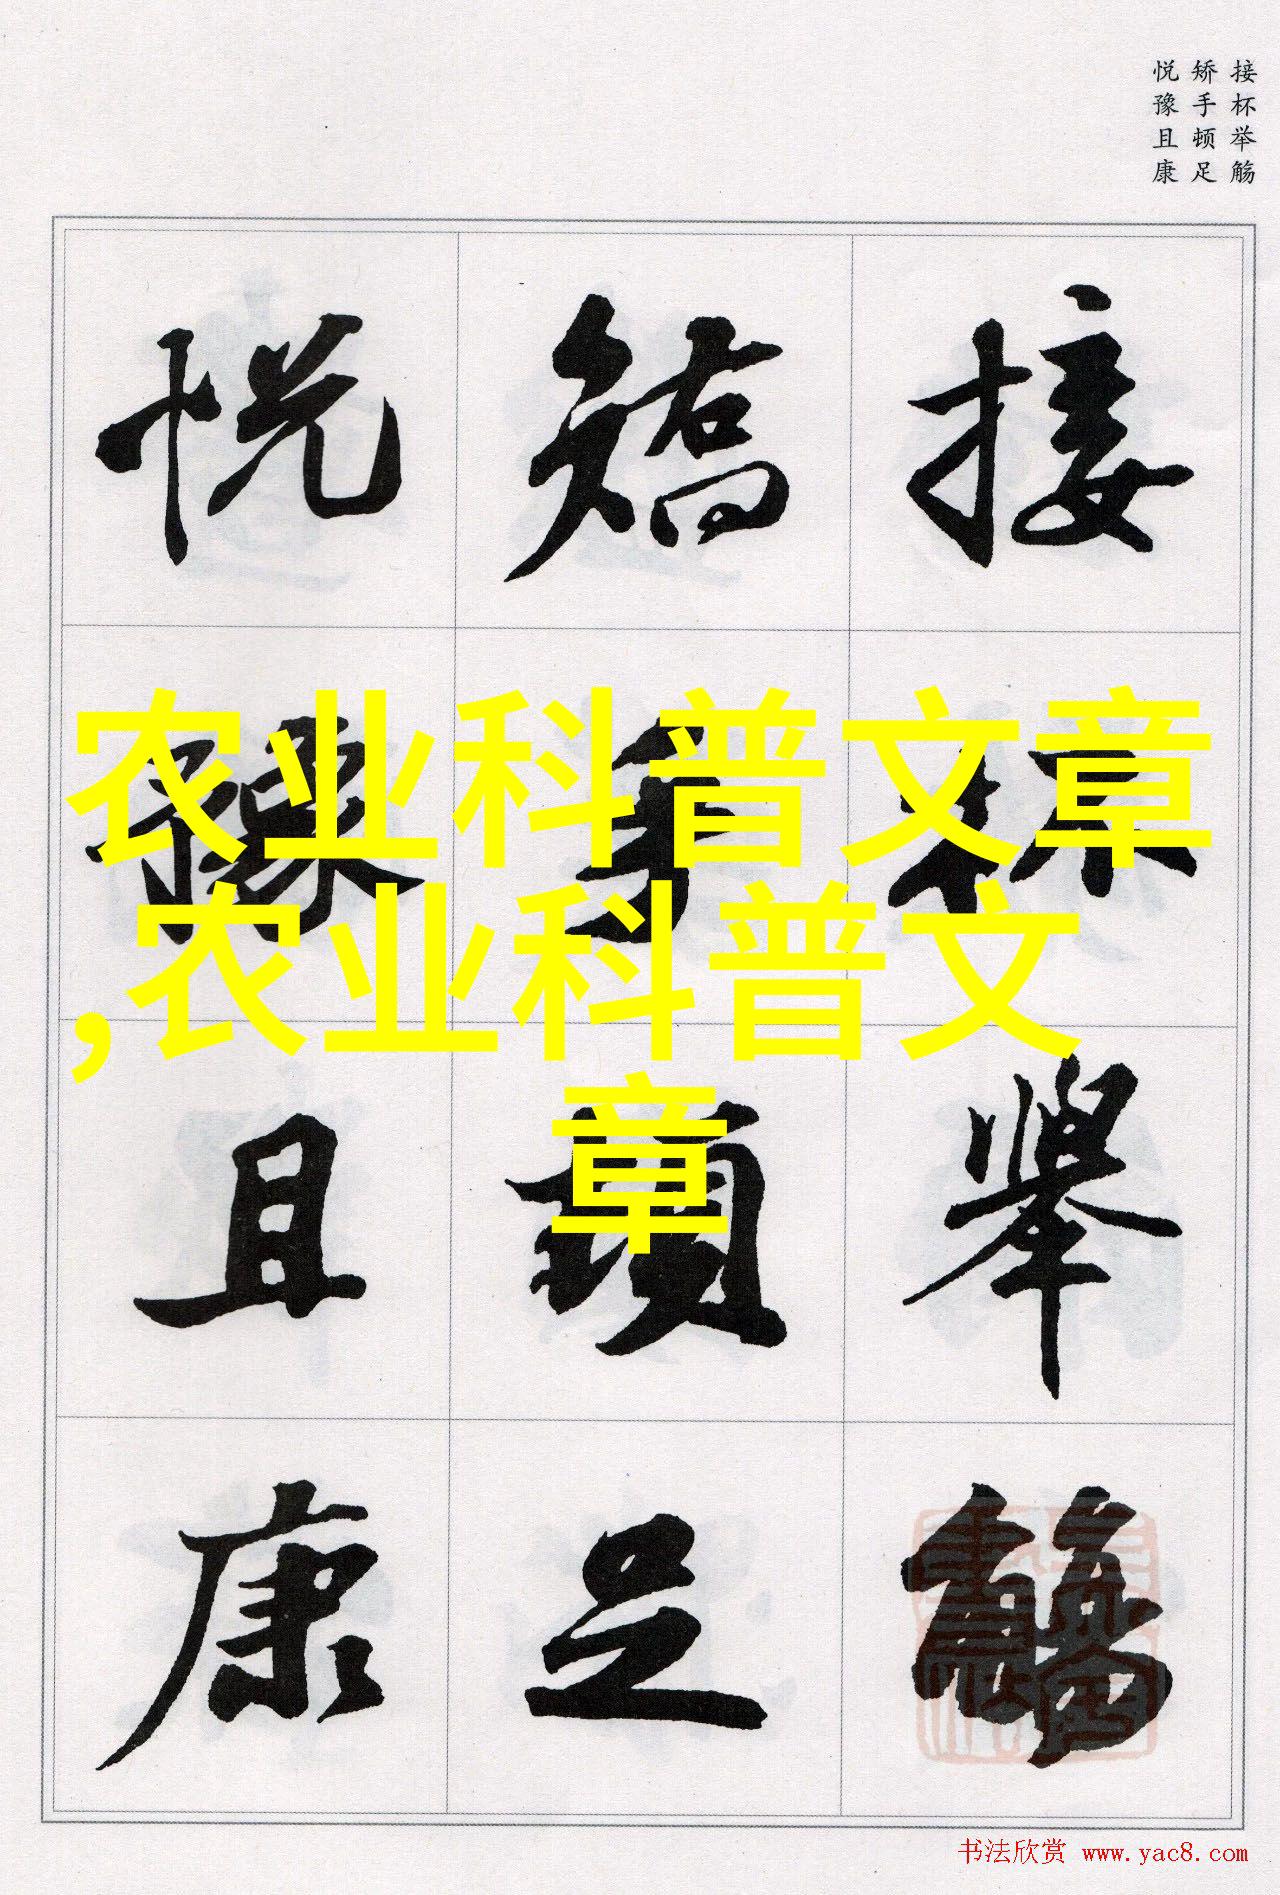 接杯举觞
矫手顿足
悦豫且康
接杯舉觴
矯手頓足
悦豫且康
农业科普文章
,农业科普文
章
书法欣赏 www.yac8.com